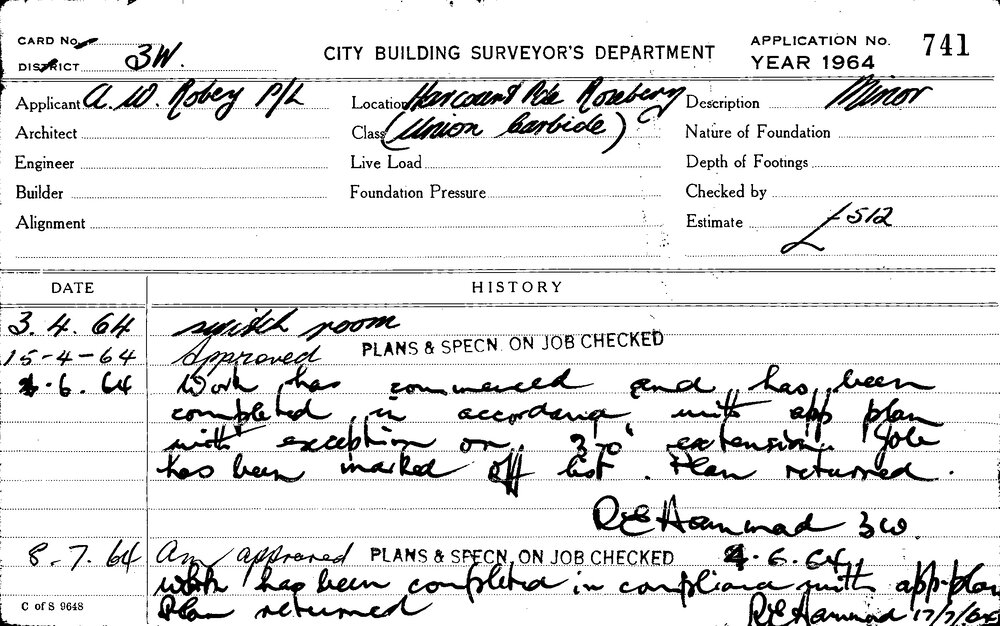 CARD No.
DISTRICT 3W.
CITY BUILDING SURVEYOR'S DEPARTMENT
APPLICATION No. 741
YEAR 1964
Applicant A. W. Robey P/L
Location Harcourt Pde Rosebery
Description Minor
Architect
Class (Union Carbide)
Nature of Foundation
Engineer
Live Load
Depth of Footings
Builder
Foundation Pressure
Checked by
Alignment
Estimate £512
DATE HISTORY
3.4.64 switch room
15-4-64 Approved PLANS & SPECN. ON JOB CHECKED
4.6.64 Work has commenced and has been
completed in accordance with app plan
with exception on extension. Job
has been marked off list. Plan returned.
REHammad 3W.
4.6.64
8.7.64 Am approved PLANS & SPECN. ON JOB CHECKED
Work has been completed in compliance with app-plan
Plan returned REHammad 17/7/64
C of S 9648